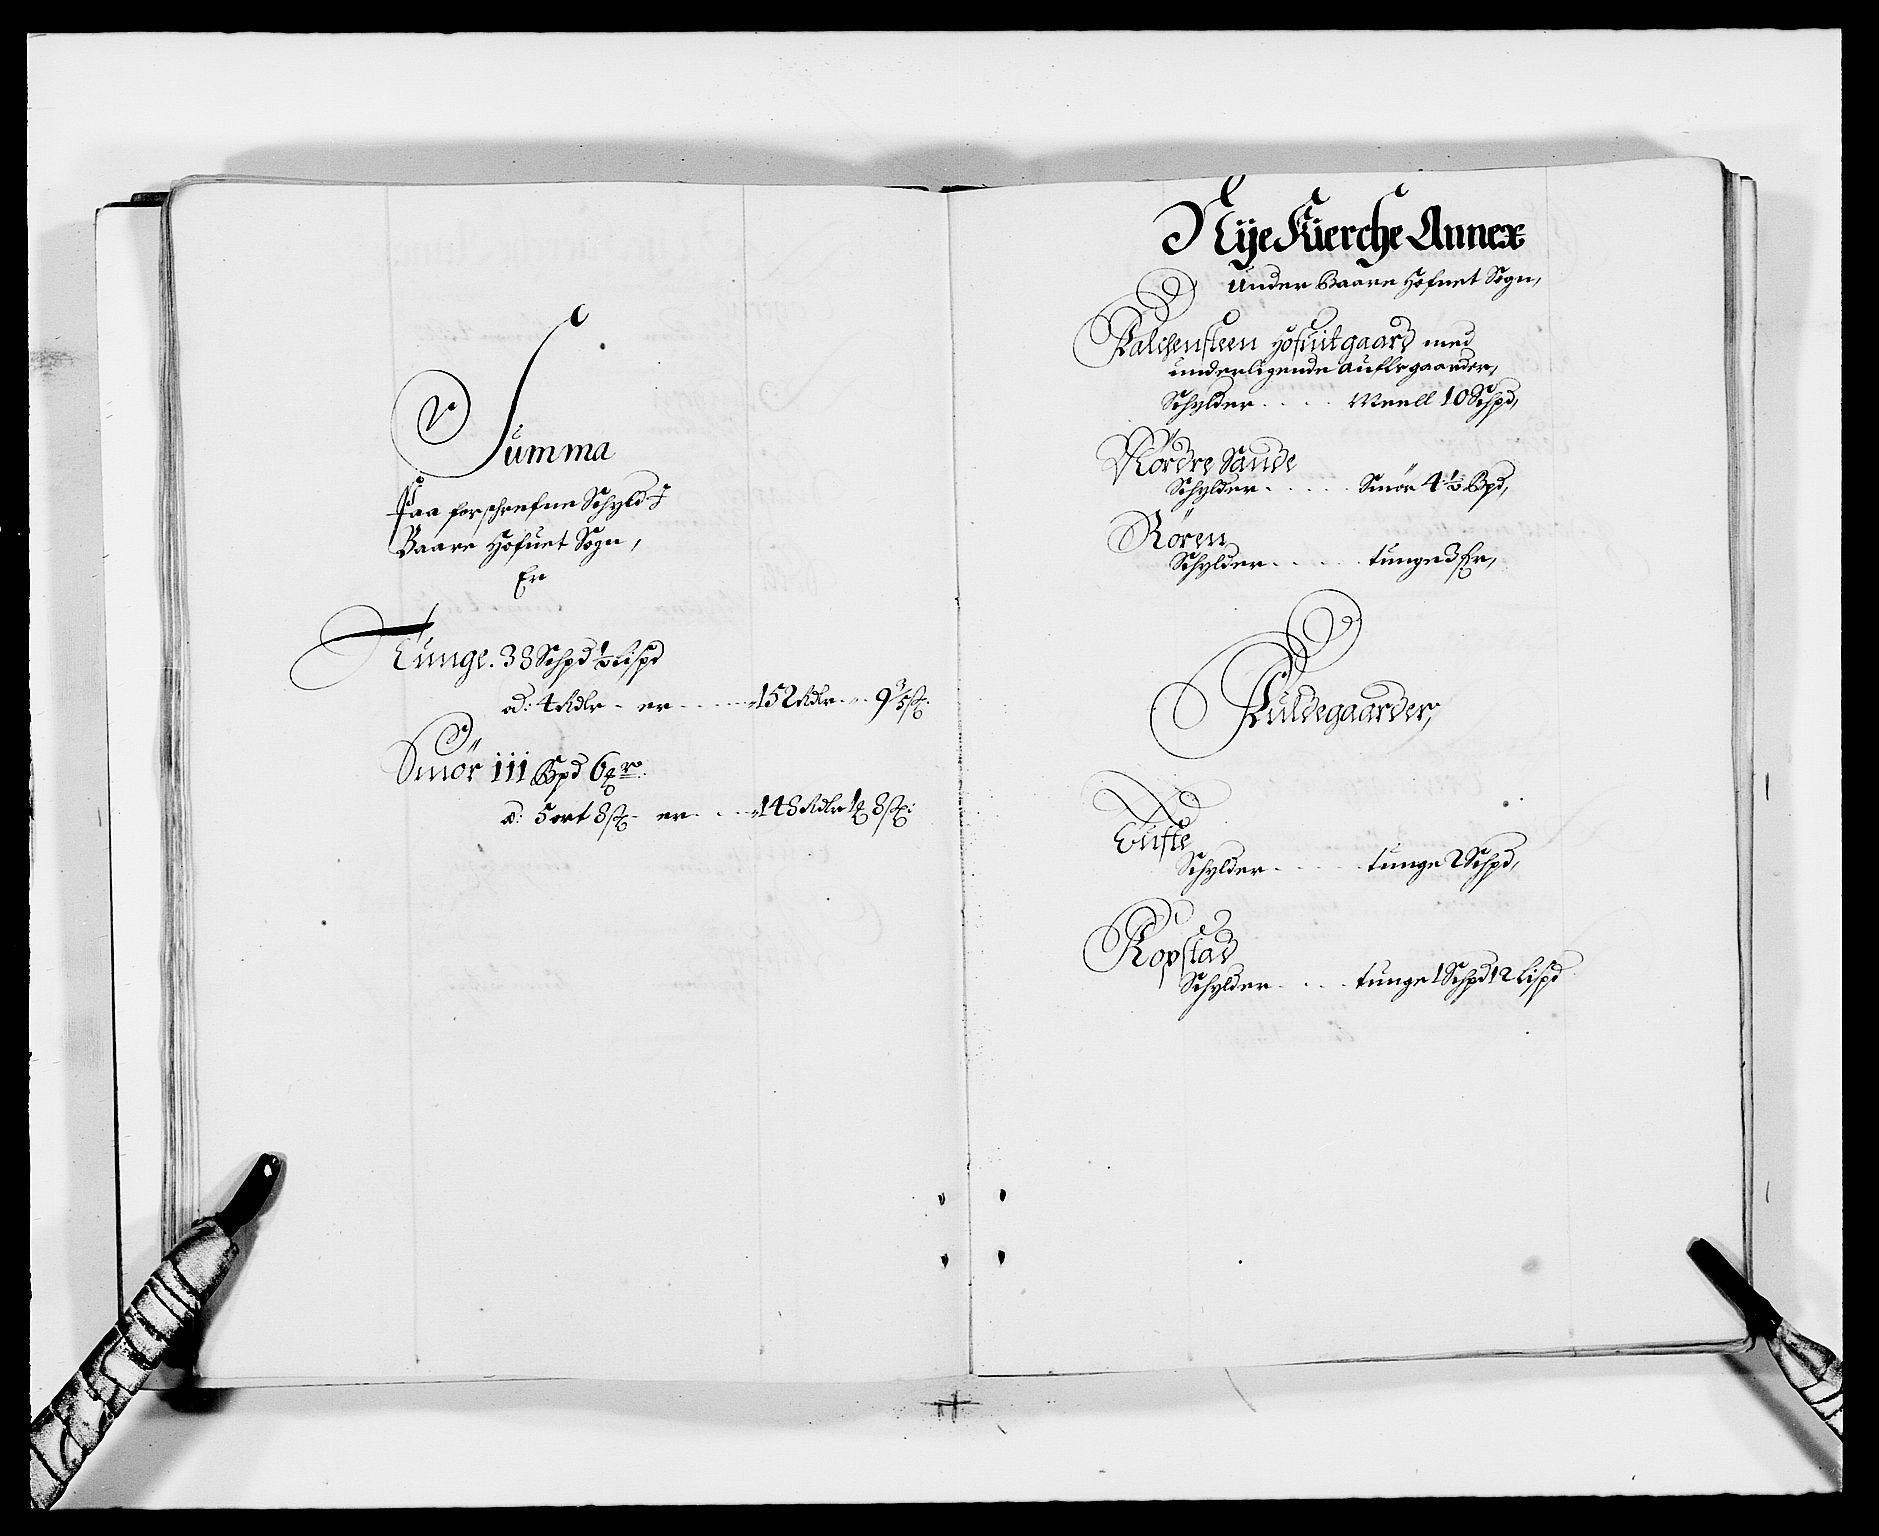 Summa
Paa forschrefne Schyld J
Baare Hofuet Sogn,
Er
Tunge. 38 Schpd ½ Lispd
ad: 4 Rdlr - er 152 Rdlr 9 3/5 sk
Smör 111 Bpd 6
a: 5 ort 8 sk er 148 Rdlr 1 8 sk:
Nye Kierche Annex
Under Baare Hofuet Sogn,
Falchensteen Hofuitgaard med
underligende Auflsgaarder,
Schylder Meell 10 Schpd,
Nordre Sande
Schylder Smör 4½ Bpd,
Rören
Schylder tunge 3
Fuldegaarder,
Tufte
Schylder tunge 2 Schpd,
Kopstad
Schylder tunge 1 Schpd 12 Lispd